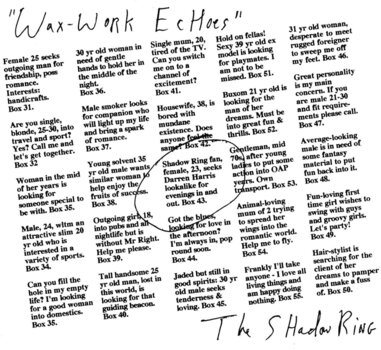 "Wax-Work Echoes"
Female 25 seeks
outgoing man for
friendship, poss
romance.
Interests:
handicrafts.
Box 31.
Are you single,
blonde, 25-30, into
travel and sport?
Yes? Call me and
let's get together.
Box 32
Woman in the mid
of her years is
looking for
someone special to
be with. Box 35.
Male, 24, wltm an
attractive slim 20
yr old who is
interested in a
variety of sports.
Box 34.
Can you fill the
hole in my empty
life? I'm looking
for a good woman
into domestics.
Box 35.
30 yr old woman in
need of gentle
hands to hold her in
the middle of the
night.
Box 36.
Male smoker looks
for companion who
will light up my life
and bring a spark
of romance.
Box 37.
Young solvent 35
yr old male wants
similar woman to
help enjoy the
fruits of success.
Box 38.
Outgoing girl, 18,
into pubs and all
nightlife but
without Mr Right.
Help me please.
Box 39.
Tall handsome 25
yr old man, lost in
this world, is
looking for that
guiding beacon.
Box 40.
Single mum, 20,
tired of the TV.
Can you switch
me on to a
channel of
excitement?
Box 41.
Housewife, 38, is
bored with
mundane
existence. Does
anyone feel the
same? Box 42.
Shadow Ring fan,
female, 23, seeks
Darren Harris
lookalike for
evenings in and
out. Box 43.
Got the blues,
looking for love in
the afternoon?
I'm always in, pop
round soon.
Box 44.
Jaded but still in
good spirits: 30 yr
old male seeks
tenderness &
loving. Box 45.
Hold on fellas!
Sexy 39 yr old ex
model is looking
for playmates. I
am not to be
missed. Box 51.
Buxom 21 yr old is
looking for the
man of her
dreams. Must be
into great fun &
thrills. Box 52.
Gentleman, mid
70s, after young
ladies to put some
action into OAP
years. Own
transport. Box 53.
Animal-loving
mum of 2 trying
to spread her
wings into the
romantic world.
Help me to fly.
Box 54.
Frankly I'll take
anyone - I love all
living things and
am happy doing
nothing. Box 55.
31 yr old woman,
desperate to meet
rugged foreigner
to sweep me off
my feet. Box 46.
Great personality
is my main
concern. If you
are male 21-30
and fit require-
ments please call.
Box 47.
Average-looking
male is in need of
some fantasy
material to put
fun back into it.
Box 48.
Fun-loving first
time girl wishes to
swing with guys
and groovy girls.
Let's party!
Box 49.
Hair-stylist is
searching for the
client of her
dreams to pamper
and make a fuss
of. Box 50.
The Shadow Ring